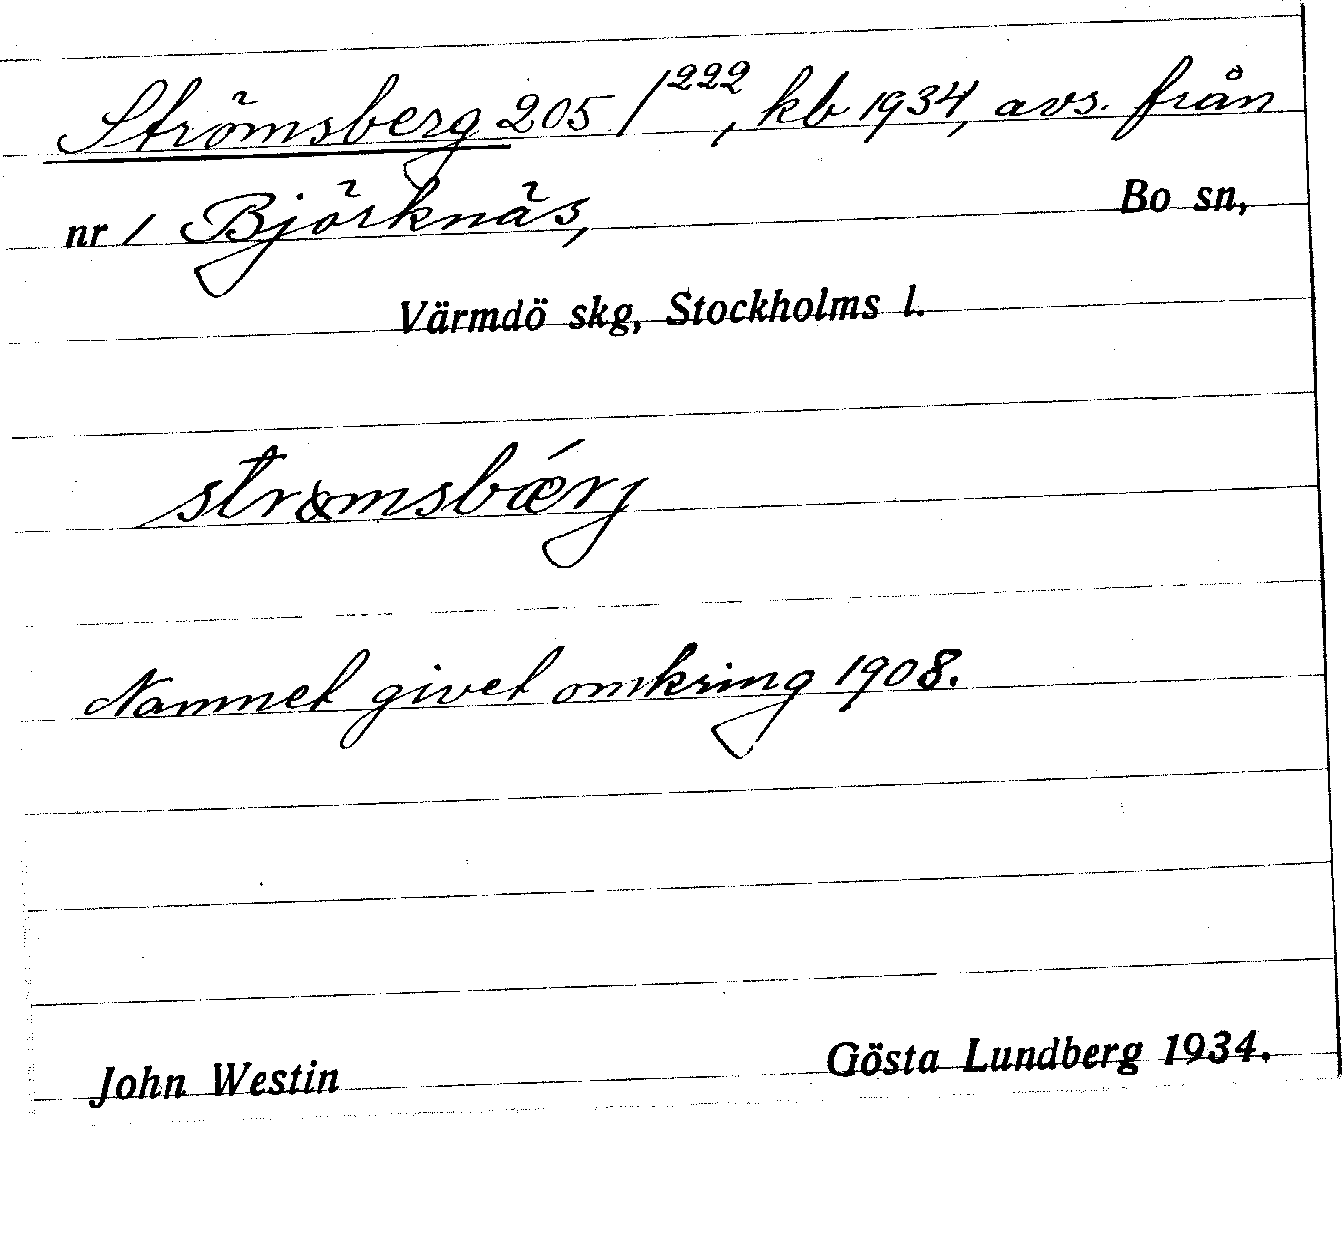 Strömsberg 205/222, kb 1934, avs. från
nr 1 Björknäs, Bo sn,
Värmdö skg, Stockholms l.
strømsbǽrj
Namnet givet omkring 1908.
John Westin Gösta Lundberg 1934.